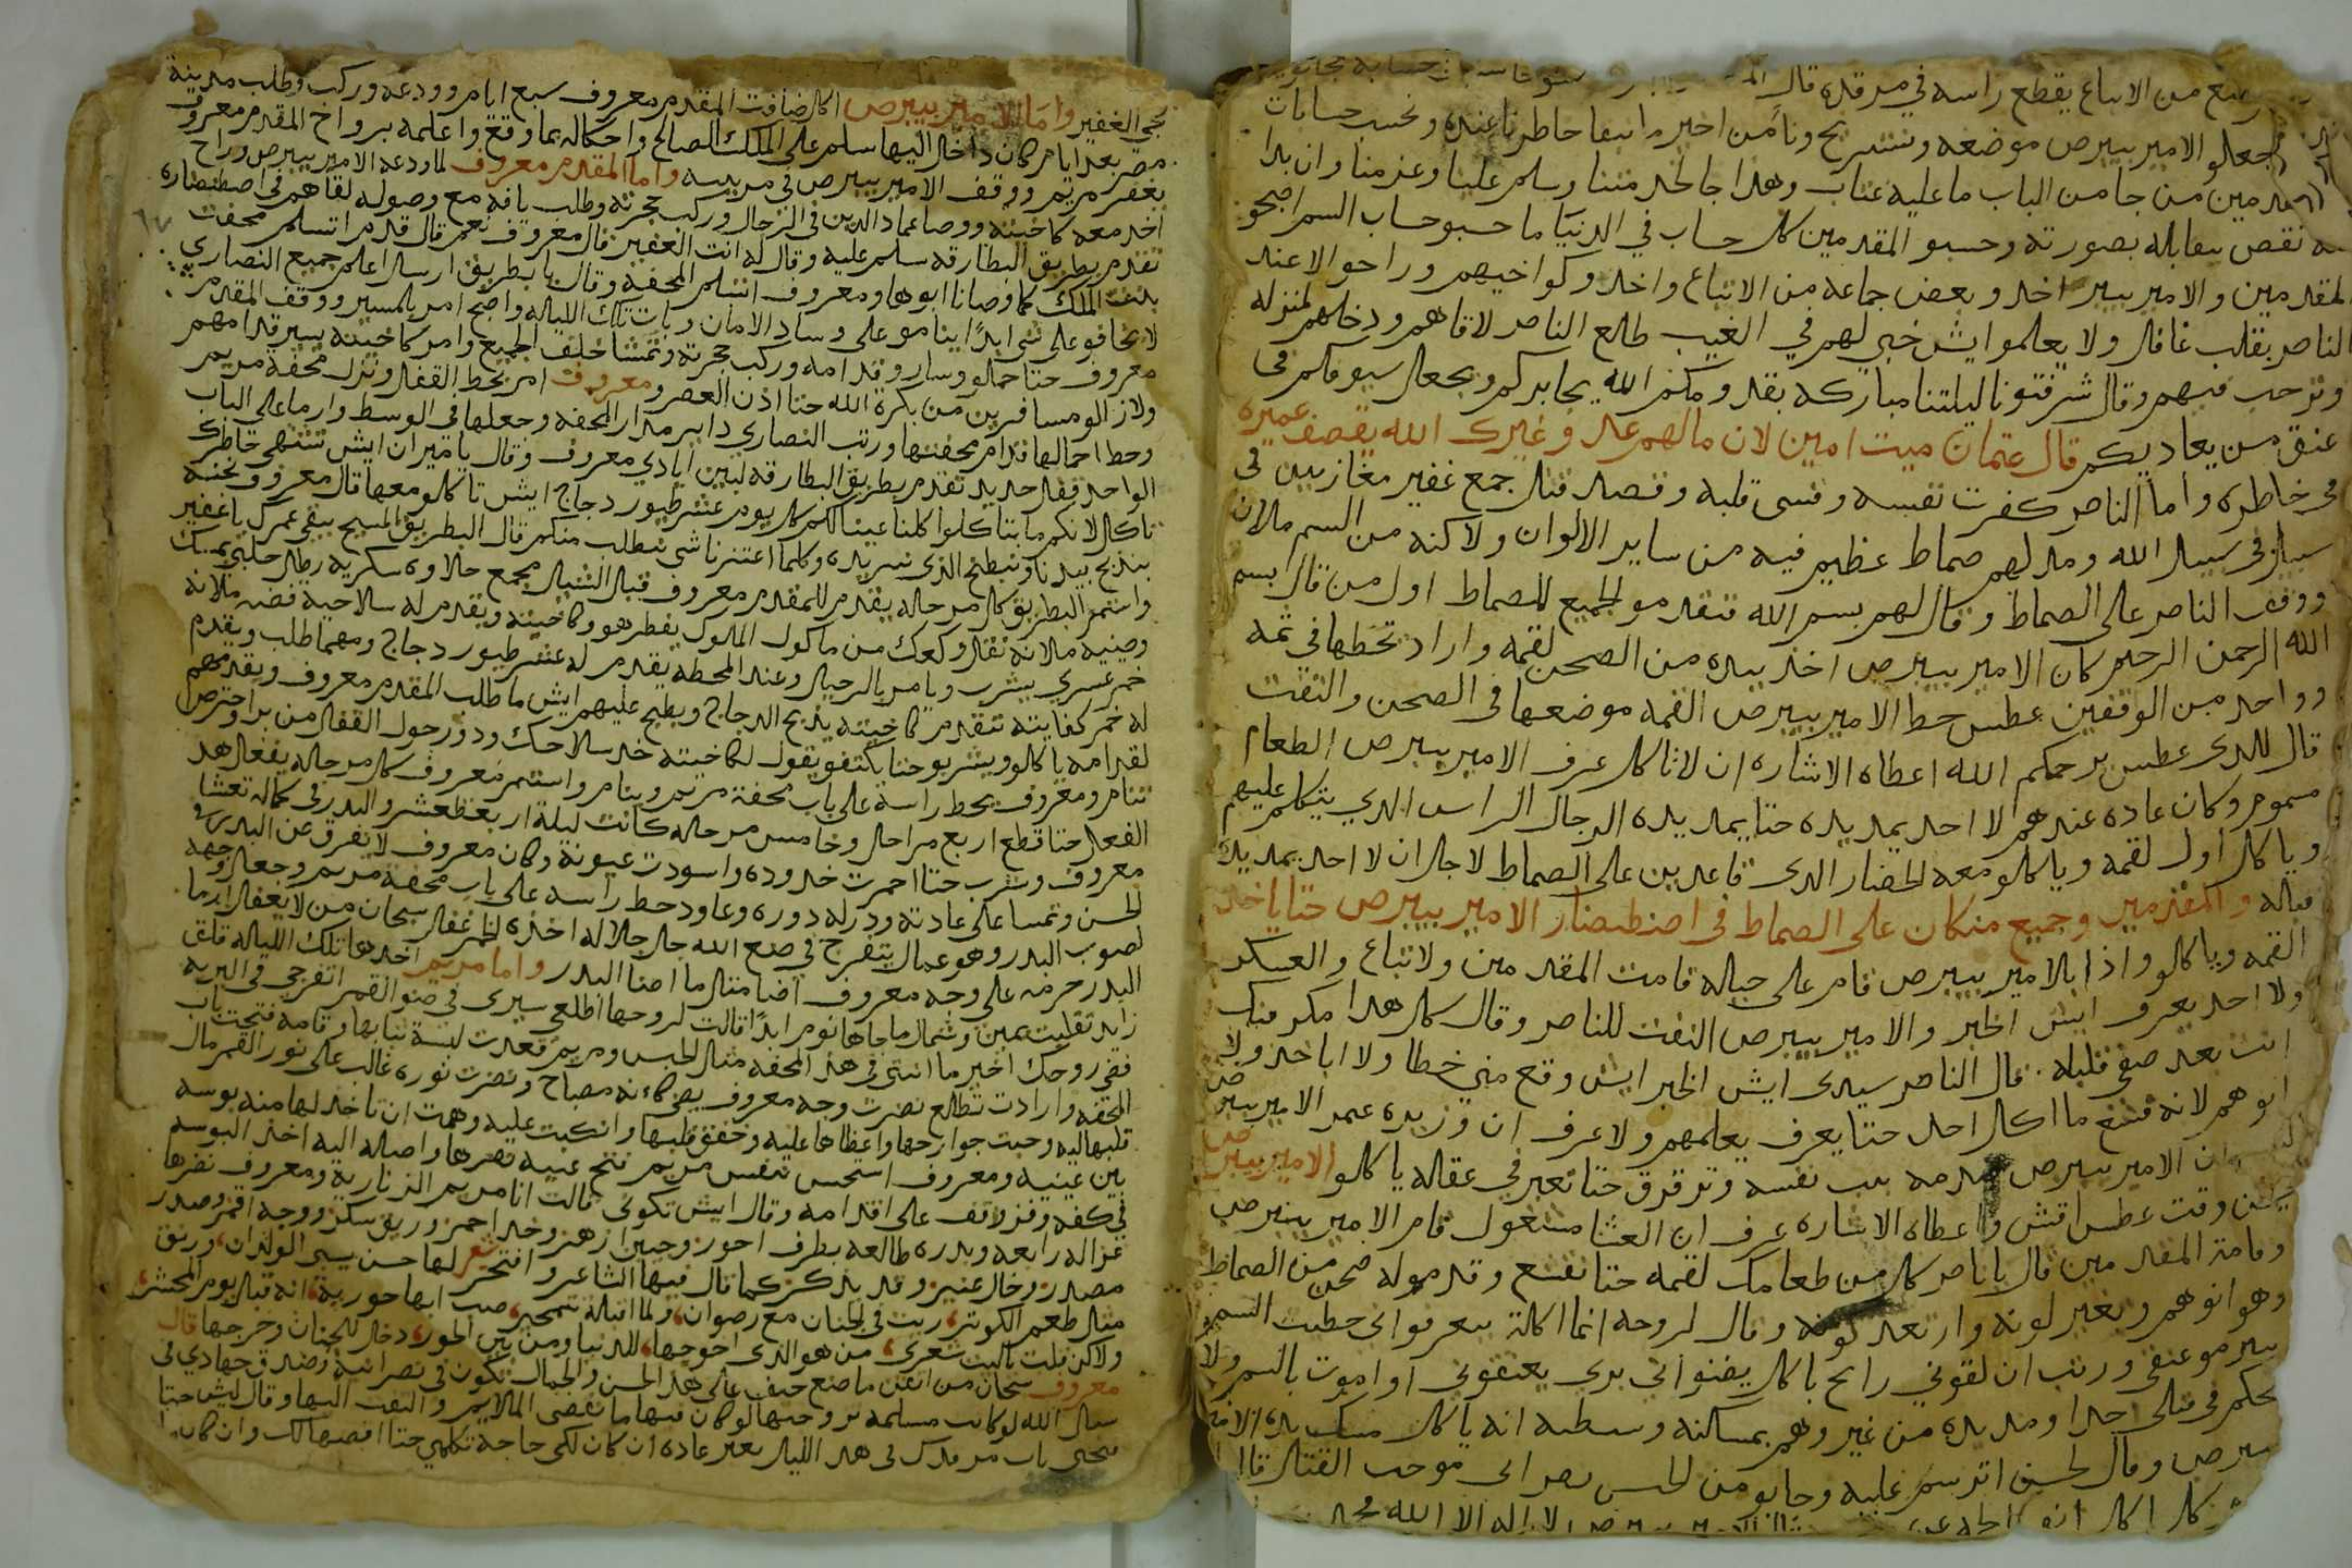 من الاتباع يقطع راسه في مرقده قال
جعلو الامير بيبرص موضعه ونستريح ونامن اخير ما ابقا خاطرنا عنده ونحسب حسابات
من جا من الباب ما عليه عتاب وهدا جا لحد متنا وسلم علينا وعزمنا وان بدا
نقص بصورته وحسبو المقدمين كل حساب في الدنيا ما حسبو حساب السم اصبحو
المقدمين والامير بيبر اخد وبعض جماعه من الاتباع واخد وكواخيهم وراحو الا عند
الناصر بقلب غافل ولا يعلموا ايش خبي لهم في الغيب طلع الناصر لاقاهم ودخلهم لمنزله
وترحب فيهم وقال شرفتونا ليلتنا مباركه بقدومكم الله يجابركم ويجعل سيوفكم في
عنق من يعاديكم قال عتمان ميت امين لان مالهم عد وغيرك الله يقصف عميره
في خاطره واما الناصر كفرت نفسه وقسى قلبه وقصد قتل جمع غفير مغازيين في
سبيل في سبيل الله ومد لهم صماط عظيم فيه من ساير الالوان ولاكنه من السم ملان
ووقف الناصر على الصماط وقال لهم بسم الله تتقدمو الجميع للصماط اول من قال بسم
الله الرحمن الرحيم كان الامير بيبرص اخد بيده من الصحن لقمه واراد تحطها في تمه
وواحد من الوقفين عطس حط الامير بيبرص القمه موضعها في الصحن والتفت
قال للدى عطس يرحمكم الله اعطاه الاشاره ان لا تاكل عرف الامير بيبرص الطعام
مسموم وكان عاده عندهم لا احد يمد يده حتا يمد يده الرجال الراس الدي يتكلم عليهم
وياكل اول لقمه وياكلو معه الحضار الدى قاعدين على الصماط لاجل ان لا احد يمد يده
قباله والمقدمين وجميع منكان على الصماط في اصنطضار الامير بيبرص حتا ياخد
القمه وياكلو واذا بالامير بيبرص قام على حياله قامت المقدمين ولاتباع والعسكر
ولا احد يعرف ايش الخبر والامير بيبرص التفت للناصر وقال كل هدا مكر منك
انت بعد صفي قلبك قال الناصر سيدى ايش الخبر ايش وقع مني خطا ولا اباحد ولا
انوهم لانه قنع ما اكل احد حتا يعرف يعلمهم ولا عرف ان وزيده عمر الامير بيبرص
ان الامير بيبرص نفسه وترقرق حتا تعبر في عقاله ياكلو الامير بيبرص
وقت عطس اقتش واعطاه الاشاره عرف ان العشا مشغول قام الامير بيبرص
وقامة المقدمين قال يا ناصر كل من طعامك لقمه حتا نقنع وقدمو له صحن من الصماط
وهو انوهم وتغير لونه وارتعد كونه وقال لروحه انما اكلت بيعرفوا اني حطيت السم
عنقي ورتب ان لقوني رايح باكل يفنو اني بري يعتقوني او اموت بالسم ولا
يحكم في قتلي احدا ومد يده من غير وهم بمسكنه وسطه انه ياكل مسك يده الامير
بيبرص وقال لحسن اترسم عليه
كل اكل لا اله الا الله محمد
نجي الغفير واما الامير بيبرص اكل ضيافت المقدم معروف سبع ايام وودعه وركب وطلب مدينة
مصر بعد ايام كان داخل اليها سلم على الملك الصالح واحكاله بما وقع واعلمه برواح المقدم معروف
بغفر مريم ووقف الامير بيبرص في مرتبه واما المقدم معروف لما ودعه الامير بيبرص وراح
اخد معه كاخيته ووصا عماد الدين في الرجال وركب حجرته وطلب يافه مع وصوله لقاهم في اصطنضاره
تقدم بطريق البطارقه سلم عليه وقال له انت الغفير قال معروف نعم قال قدم اتسلم محفت
بنت الملك كما وصانا ابوها ومعروف اتسلم المحفه وقال يا بطريق ارسل اعلم جميع النصاري
لا تخافو على شي ابدًا ينامو على وساد الامان وبات تلك الليله واصبح امر بالمسير ووقف المقدم
معروف حتا حملو وسارو قدامه وركب حجرته وتمشا خلف الجميع وامر كاخيته يسير قدامهم
ولازالو مسافرين من بكرة الله حتا ادن العصر ومعروف امر بحط القفل ونزل محفة مريم
وحط احمالها قدام محفتها ورتب النصاري داير مدار المحفه وجعلها في الوسط وارما على الباب
الواحد قفل حديد تقدم بطريق البطارقه لبين ايادي معروف وقال يا قبران ايش تشتهي خاطرك
تاكل لانكم ما بتاكلوا كلنا عبينالكم كل يوم عشر طيور دجاج ايش تاكلو معها قال معروف نحنه
بندبح بيدنا ونبطخ الدى نريده وكلما اعتزنا شي نطلب منكم قال البطريق المسيح يبقي عمرك يا غفير
واستمر البطريق كل مرحله يقدم للمقدم معروف قبال الشيل مجمع حلاوه سكريه رطل حلبي بمسك
وصينيه ملانه نقل وكعك من ماكول الملوك يفطر هو وكاخيته ويقدم له سلاحيه فضه ملانه
خمر عسري يشرب ويامر بالرحيل وعند المحطه يقدم له عشر طيور دجاج ومهما طلب ويقدم
له خمر كفايته تتقدم كاخيته يدبح الدجاج ويطبخ عليهم ايش ما طلب المقدم معروف ويقدمهم
لقدامه ياكلو ويشربو حتا يكتفو يقول لكاخيته خد سلاحك ودور حول القفل من برا واحترص
تنام ومعروف يحط راسه على باب محفة مريم وينام واستمر معروف كل مرحله يفعل هد
الفعل حتا قطع اربع مراحل وخامس مرحله كانت ليلة اربعطعشر والبدر في كماله تعشا
معروف وشرب حتا احمرت خدوده واسودت عيونه وكان معروف لا يفرق عن البدر في
الحسن وتمسا على عادته ودرله دوره وعاود حط راسه على باب محفة مريم وجعل وجهه
لصوب البدر وهو عمال يتفرج في صنع الله جل جلاله اخده الخمر غفل سبحان من لا يغفل ابدا ما
البدر حرمه على وجه معروف اضا متل ما اضا البدر واما مريم اخدها تلك الليله قلق
زايد تقلبت يمين وشمال ما جاها نوم ابدًا قالت لروحها اطلعي سيري في ضو القمر اتفرجي في البريه
فقي روحك اخير ما انتي في هذه المحفه متل الحبس ومريم قعدت لبسة تيابها وقامه فتحت باب
المحفه وارادت تطلع نضرت وجه معروف يضي كانه مصباح ونضرت نوره غالب على نور القمر مال
قلبها ليه وحبت جوارحها واعطاها عليه وخفق قلبها وانكبت عليه وهمت ان تاخد لها منه بوسه
بين عينيه ومعروف استحس تنفس مريم فتح عينيه نضرها واصله اليه اخد البوسه
في كفه وفز وقف على اقدامه وقال ايش تكوني قالت انا مريم الزناريه ومعروف نضرها
غزاله رابعه وبدره طالعه بطرف احور وجبين ازهر وخد احمر وريق سكر ووجه اقمر وصدر
مصدر وخال عنبر وقد يدكر كما قال فيها الشاعر وافتخر شعر لها حسن يسبى الولدان، وريق
متل طعم الكوتر، ربت في الجنان مع رضوان، ولما اقبلة تتبختر، حسب انها حورية، انه قبال يوم المحشر،
ولاكن قلت يا ليت شعري، من هو الدى احوجها، للدنيا ومن بين الحور، دخل للجنان وخرجها قال
معروف سبحان من اتقن ما صنع حيف على هدا الحسن والجمال تكون في نصرانيه قصدي جهادي في
سبيل الله لو كانت مسلمه تزوجتها لو كان فيها ما تقضى الملايم والتفت اليها وقال ليش حتا
فتحتي باب مرقدك في هد الليل بغير عاده ان كان لكي حاجة تكلمي حتا اقضيها لك وان كان